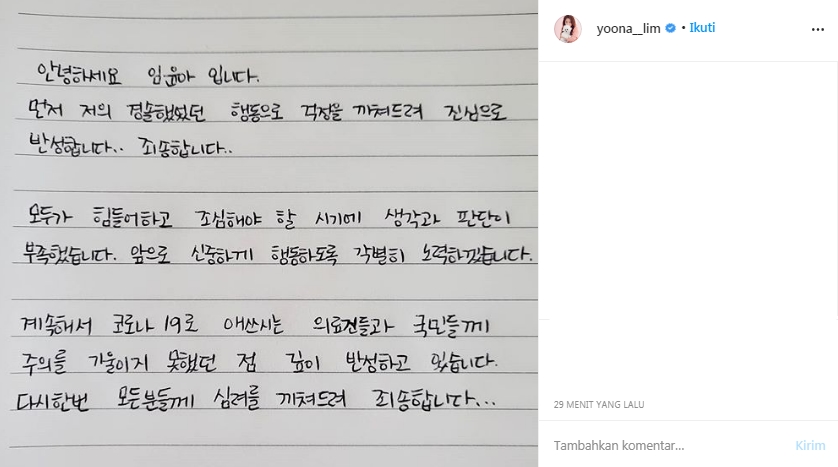 안녕하세요 임윤아 입니다.
먼저 저의 경솔했었던 행동으로 걱정을 끼쳐드려 진심으로
반성합니다.. 죄송합니다..
모두가 힘들어하고 조심해야 할 시기에 생각과 판단이
부족했습니다. 앞으로 신중하게 행동하도록 각별히 노력하겠습니다.
계속해서 코로나 19로 애쓰시는 의료진들과 국민들께
주의를 기울이지 못했던 점 깊이 반성하고 있습니다.
다시한번 모든분들께 심려를 끼쳐드려 죄송합니다...
yoona__lim • Ikuti
29 MENIT YANG LALU
Tambahkan komentar... Kirim